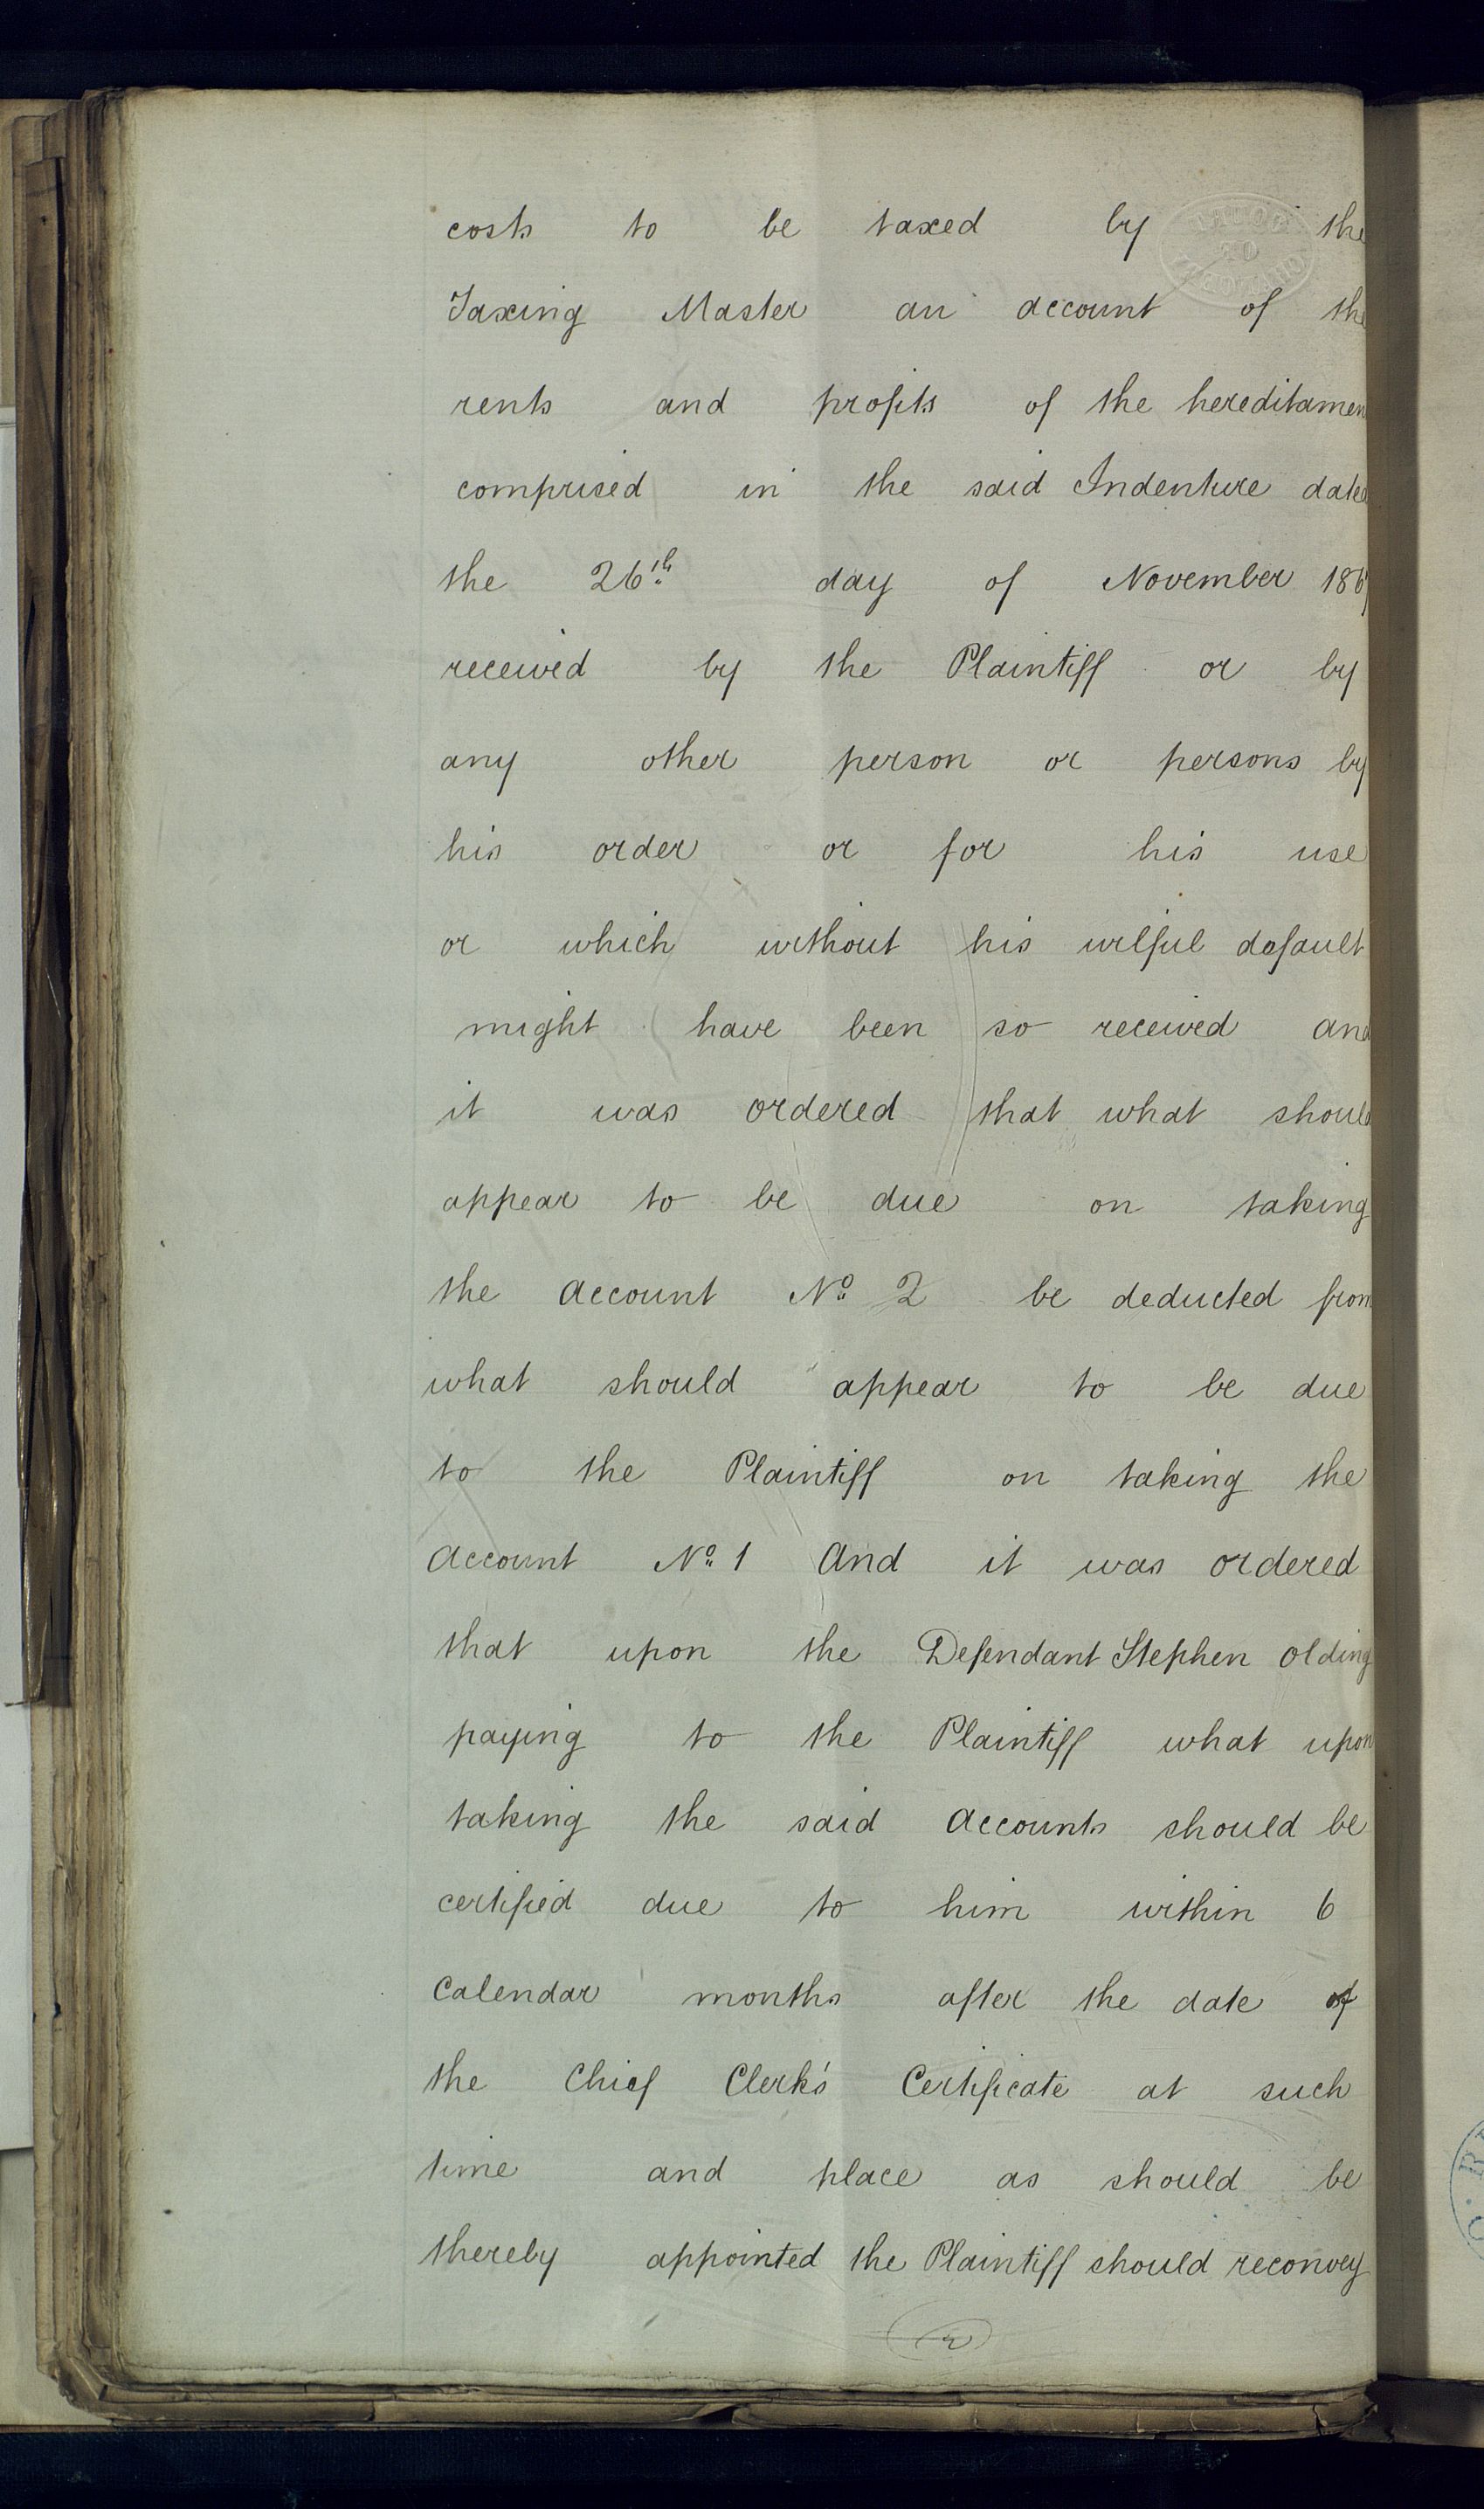 costs to be taxed by the
Taxing Master an account of the
rents and profits of the hereditamen
comprised in the said Indenture dated
the 26th day of November 186
received by the Plaintiff or by
any other person or persons by
his order or for his use
or which without his wilful default
might have been so received and
it was ordered that what should
appear to be due on taking
the account No 2 be deducted from
what should appear to be due
to the Plaintiff on taking the
account No 1 And it was ordered
that upon the Defendant Stephen Olding
paying to the Plaintiff what upon
taking the said accounts should be
certified due to him within 6
Calendar months after the date of
the Chief Clerk's Certificate at such
time and place as should be
thereby appointed the Plaintiff should reconvey